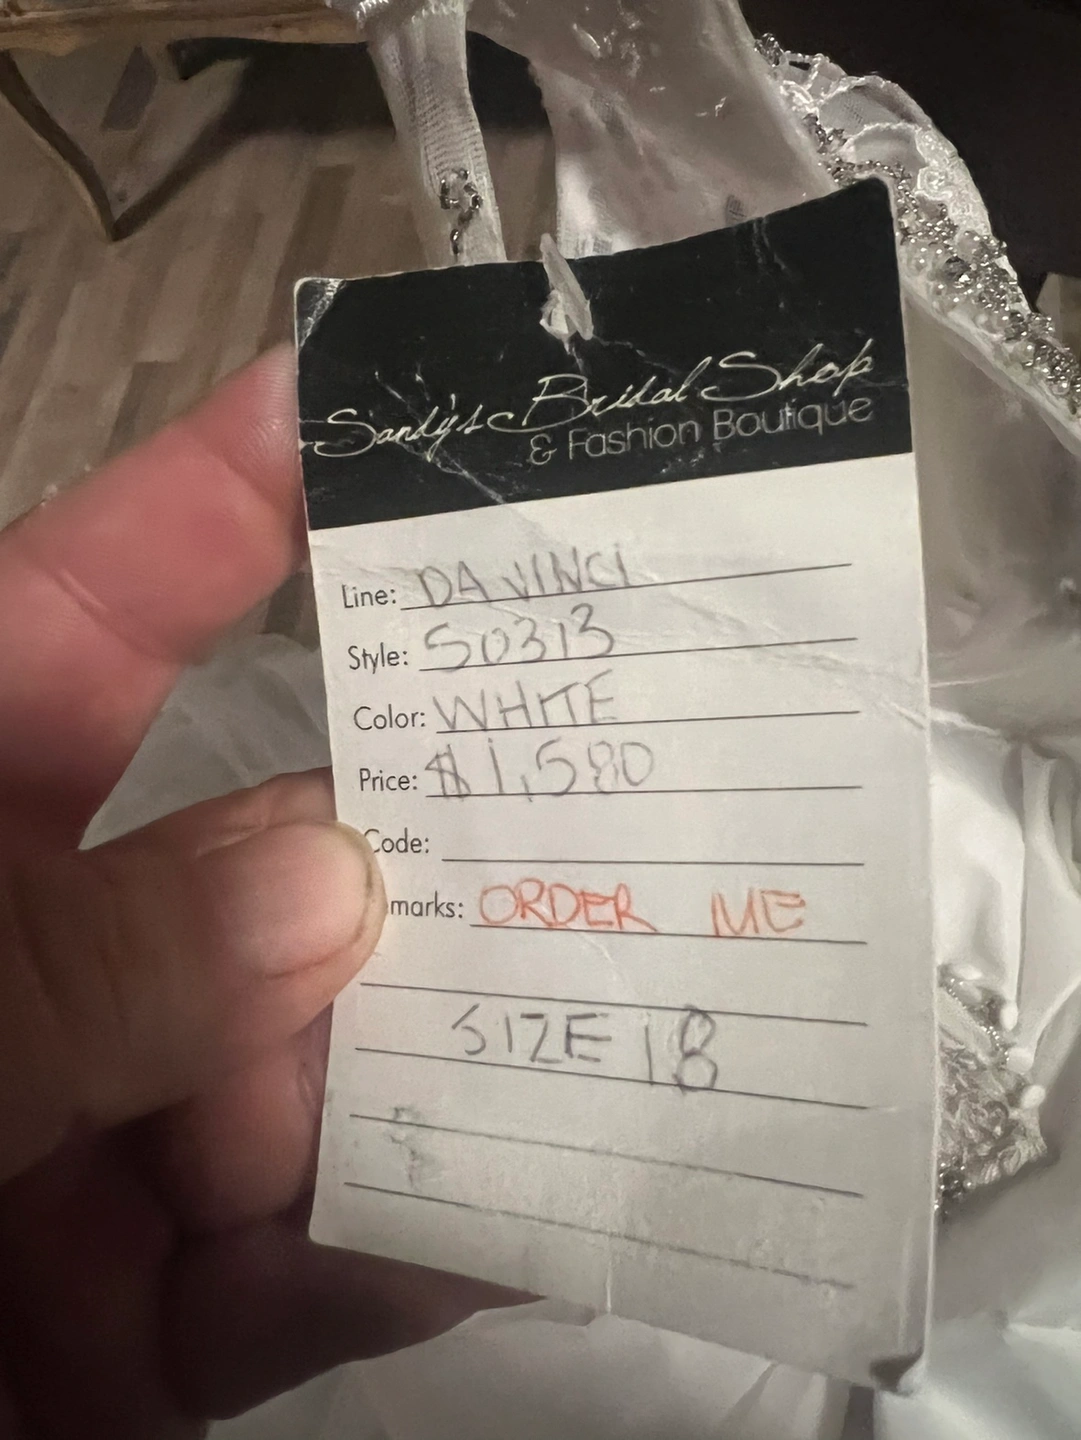 Sandy's Bridal Shop
& Fashion Boutique
Line: DA VINCI
Style: 50313
Color: WHITE
Price: $1,580
Code:
marks: ORDER ME
SIZE 18